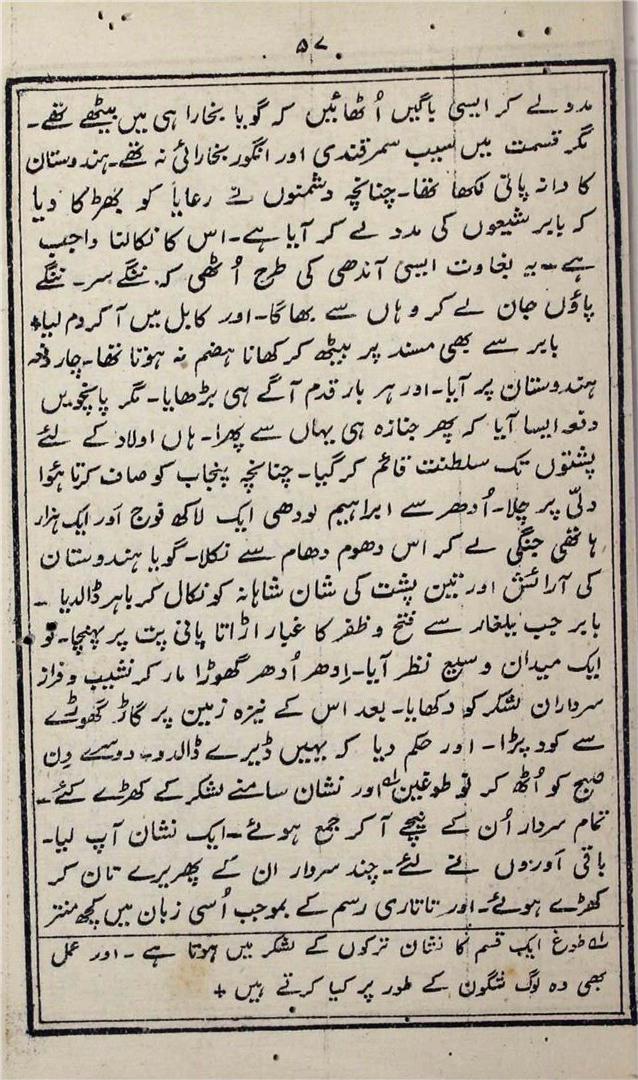 ۵۷
مدد لے کر ایسی باگیں اُٹھائیں کہ گویا بخارا ہی میں بیٹھے تھے۔
مگر قسمت میں سیب سمرقندی اور انگور بخارائی نہ تھے۔ ہندوستان
کا دانہ پانی لکھا تھا۔ چنانچہ دشمنوں نے رعایا کو بھڑکا دیا
کہ بابر شیعوں کی مدد لے کر آیا ہے۔ اس کا نکالنا واجب
ہے۔ یہ بغاوت ایسی آندھی کی طرح اُٹھی کہ ننگے سر۔ ننگے
پاؤں جان لے کر وہاں سے بھاگا۔ اور کابل میں آ کر دم لیا+
بابر سے بھی مسند پر بیٹھ کر کھانا ہضم نہ ہوتا تھا۔ چار دفعہ
ہندوستان پر آیا۔ اور ہر بار قدم آگے ہی بڑھایا۔ مگر پانچویں
دفعہ ایسا آیا کہ پھر جنازہ ہی یہاں سے پھرا۔ ہاں اولاد کے لئے
پشتوں تک سلطنت قائم کر گیا۔ چنانچہ پنجاب کو صاف کرتا ہُوا
دلّی پر چلا۔ اُدھر سے ابراہیم لودھی ایک لاکھ فوج اَور ایک ہزار
ہاتھی جنگی لے کر اس دھوم دھام سے نکلا۔ گویا ہندوستان
کی آرائش اور تین پشت کی شان شاہانہ کو نکال کر باہر ڈالدیا ۔
بابر جب یلغار سے فتح و ظفر کا غبار اڑاتا پانی پت پر پہنچا۔ تو
ایک میدان وسیع نظر آیا۔ اِدھر اُدھر گھوڑا مار کر نشیب و فراز
سرداران لشکر کو دکھایا۔ بعد اس کے نیزہ زمین پر گاڑ گھوڑے
سے کود پڑا ۔ اور حکم دیا کہ یہیں ڈیرے ڈالدو۔ دوسرے دِن
صبح کو اُٹھ کر تو طوغیں لہ اور نشان سامنے لشکر کے کھڑے کئے۔
تمام سردار اُن کے نیچے آ کر جمع ہوئے۔ ایک نشان آپ لیا۔
باقی اَوروں نے لئے۔ چند سردار ان کے پھریرے تان کر
کھڑے ہوئے۔ اور تاتاری رسم کے بموجب اُسی زبان میں کچھ منتر
لہ طوغ ایک قسم کا نشان ترکوں کے لشکر میں ہوتا ہے ۔ اور عمل
بھی وہ لوگ شگون کے طور پر کیا کرتے ہیں +